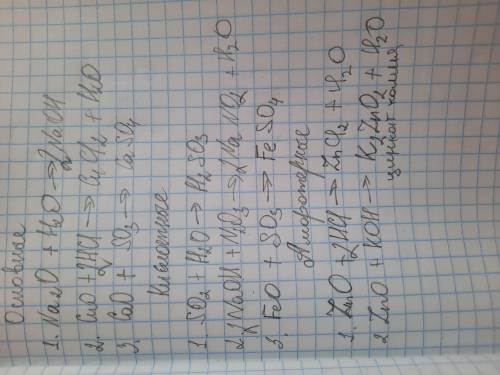 Основные
1. Na₂O + H₂O → 2NaOH
2. CuO + 2HCl → CuCl₂ + H₂O
3. CaO + SO₃ → CaSO₄
Кислотные
1. SO₂ + H₂O → H₂SO₃
2. 2NaOH + N₂O₃ → 2NaNO₂ + H₂O
3. FeO + SO₃ → FeSO₄
Амфотерные
1. ZnO + 2HCl → ZnCl₂ + H₂O
2 ZnO + KOH → K₂ZnO₂ + H₂O
цинкат калия